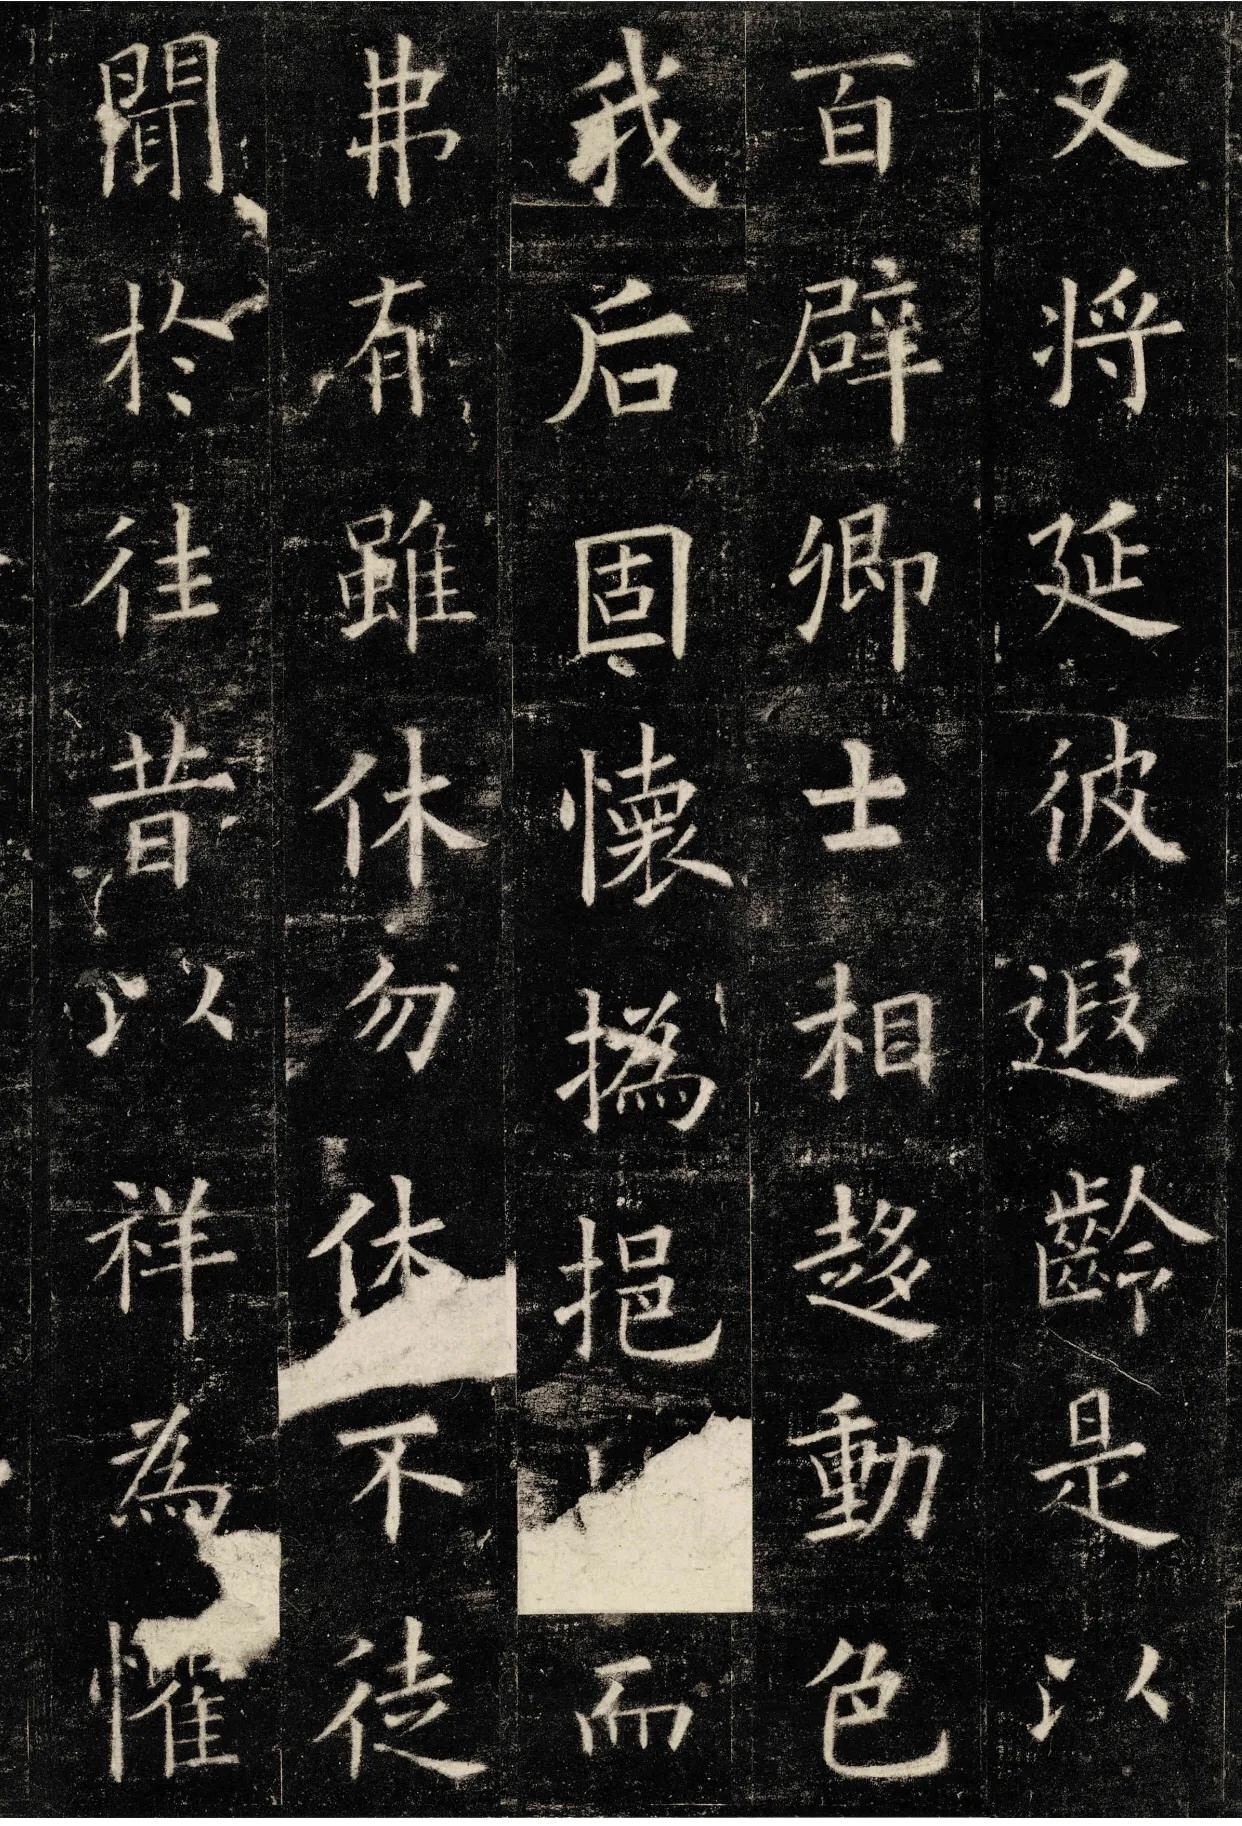 又将延彼遐齡是以
百辟卿士相趍動色
我后固懷撝挹而
弗有雖休勿休不徒
聞於徃昔以祥為懼